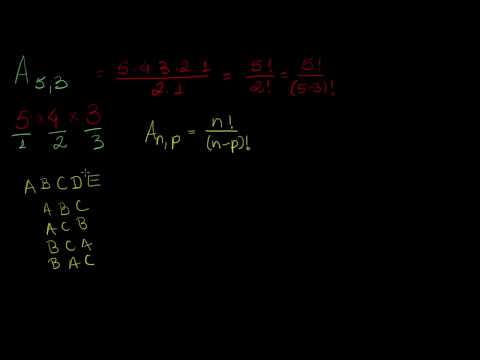 A5,3 = 5·4·3·2·1/2·1 = 5!/2! = 5!/(5-3)!
5/1 × 4/2 × 3/3
An,p = n!/(n-p)!
A B C D E
A B C
A C B
B C A
B A C